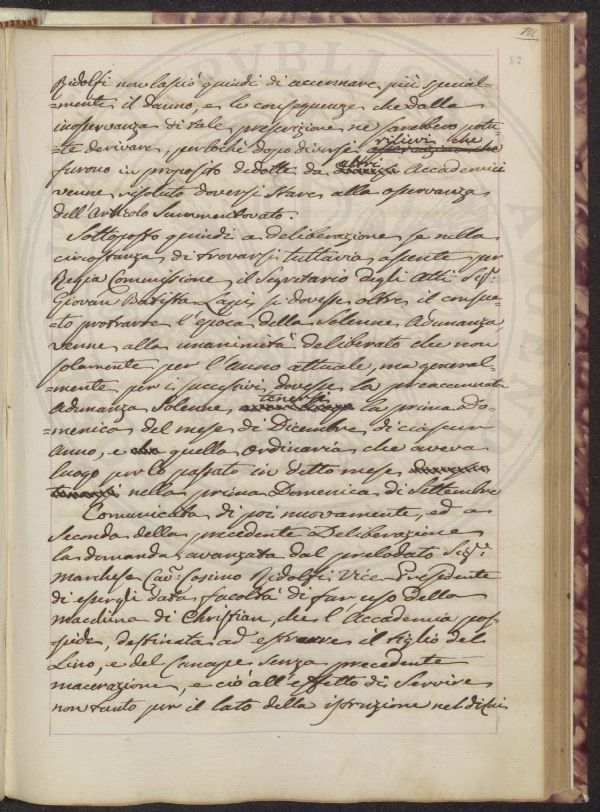 112
87
Ridolfi non lasciò quindi di accennare più special-
=mente il danno, e le conseguenze che dalla
inosservanza di tale prescrizione ne sarebbero potu-
=te derivare, perlochè dopo diversi rilievi che
furono in proposito dedotte da altri Accademici
venne risoluto doversi stare alla osservanza
dell'Articolo Summentovato.
Sottoposto quindi a deliberazione se nella
circostanza di trovarsi tuttavia assente per
Regia Commissione il Segretario degli Atti Sigr.
Giovan Batista Lapi si dovesse oltre il consue-
=to protrarre l'época della Solenne Adunanza
venne alla unanimità deliberato che non
solamente per l'anno attuale, ma general-
=mente per i successivi dovesse la preaccennata
Adunanza Solenne tenersi la prima Do-
=menica del mese di Dicembre di ciascun
anno, e quella Ordinaria che aveva
luogo per lo passato in detto mese
nella prima Domenica di Settembre
Comunicata di poi nuovamente, ed a
Seconda della precedente Deliberazione
la domanda avanzata dal prelodato Sigre.
Marchese Cav: Cosimo Ridolfi Vice-Presidente
di essergli data facoltà di far uso della
macchina di Christian, che l'Accademia pos-
=siede, destinata ad estrarre il tiglio del
Lino, e del Canape senza precedente
macerazione, e ciò all'effetto di Servire
non tanto per il lato della istruzione nel di Cui